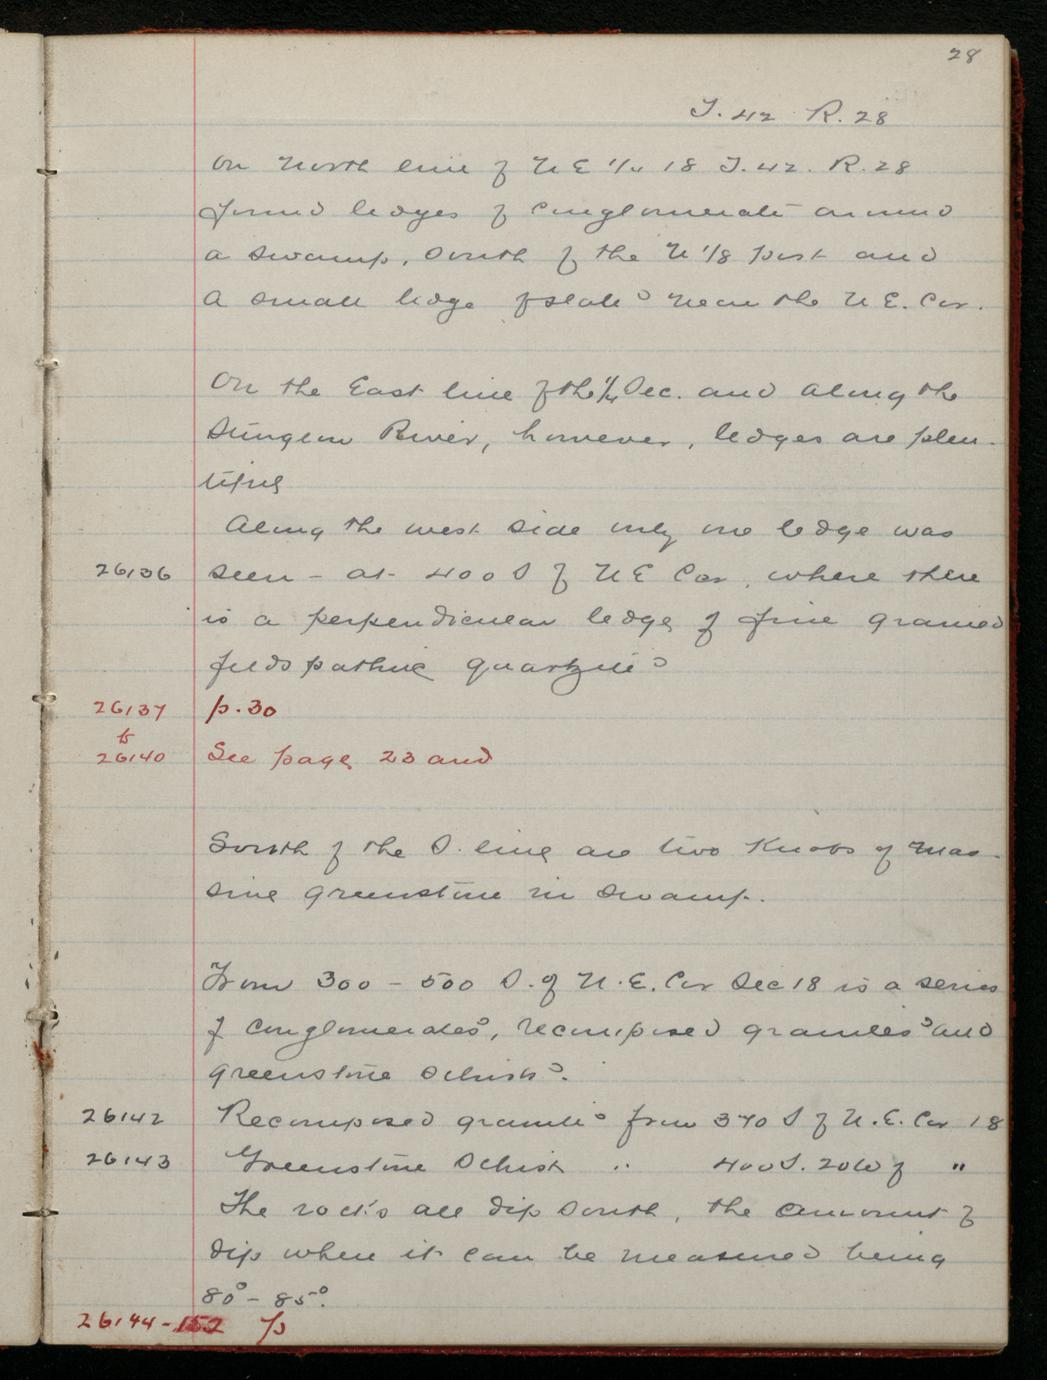 28
T. 42 R. 28
On North line of NE 1/4 18 T. 42. R. 28
found ledges of Conglomerate around
a swamp, South of the N 1/8 post and
a small ledge of slate near the N E. Cor.
On the East line of the 1/4 Sec. and along the
Sturgeon River, however, ledges are plen-
tiful
Along the west side only one ledge was
26136 seen - at 400 S of NE Cor, where there
is a perpendicular ledge of fine grained
feldspathic quartzite
26137 p. 30
to
26140 See page 23 and
South of the S. line are two Knobs of mas-
sive greenstone in swamp.
From 300 - 500 S. of N. E. Cor Sec 18 is a series
of Conglomerates, recomposed granites and
greenstone schists.
26142 Recomposed granite from 370 S of N. E. Cor 18
26143 Greenstone Schist " 400 S. 20 W of "
The rocks all dip South, the amount of
dip where it can be measured being
80° - 85°.
26144-152